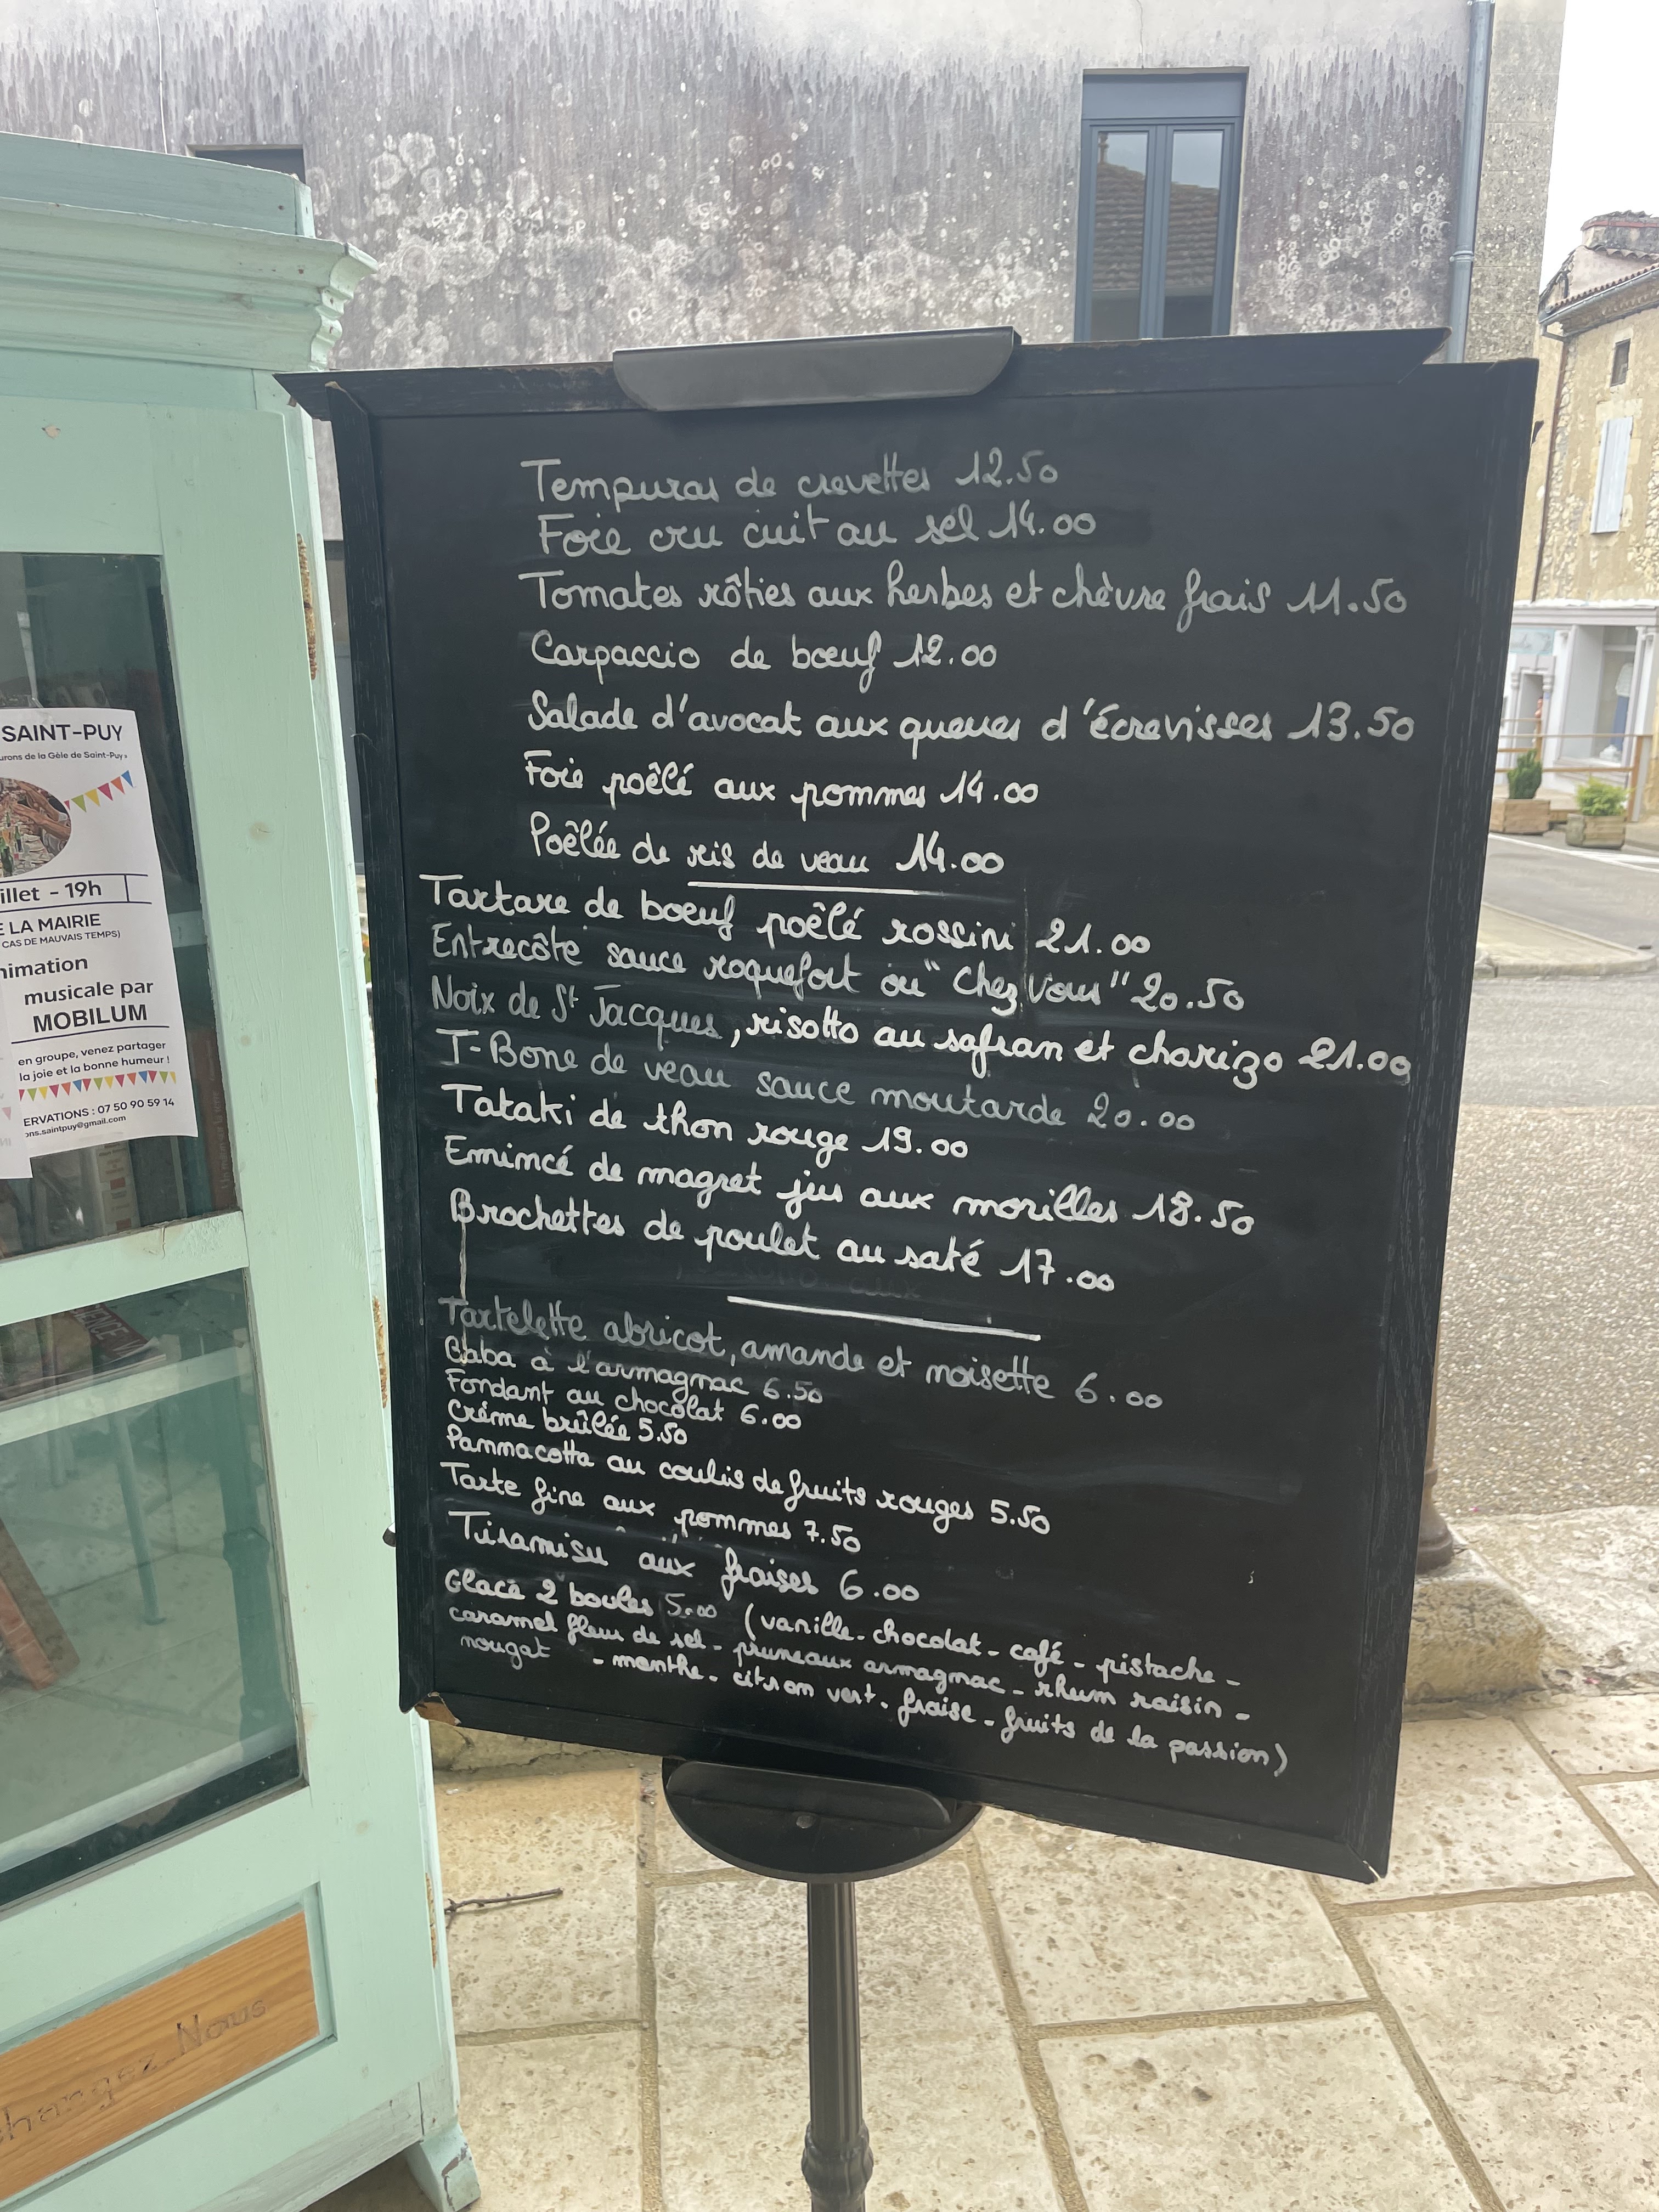 Tempuras de crevettes 12.50
Foie cru cuit au sel 14.00
Tomates rôties aux herbes et chèvre frais 11.50
Carpaccio de bœuf 12.00
Salade d'avocat aux queues d'écrevisses 13.50
Foie poêlé aux pommes 14.00
Poêlée de ris de veau 14.00
Tartare de bœuf poêlé rossini 21.00
Entrecôte sauce roquefort ou "Chez Vous" 20.50
Noix de St Jacques, risotto au safran et chorizo 21.00
T-Bone de veau sauce moutarde 20.00
Tataki de thon rouge 19.00
Emincé de magret jus aux morilles 18.50
Brochettes de poulet au saté 17.00
Tartelette abricot, amande et noisette 6.00
Baba à l'armagnac 6.50
Fondant au chocolat 6.00
Crème brûlée 5.50
Pannacotta au coulis de fruits rouges 5.50
Tarte fine aux pommes 7.50
Tiramisu aux fraises 6.00
Glace 2 boules 5.00 (vanille - chocolat - café - pistache -
caramel fleur de sel - pruneaux armagnac - rhum raisin -
nougat - menthe - citron vert - fraise - fruits de la passion)
SAINT-PUY
de la Gèle de Saint-Puy»
- 19h
LA MAIRIE
CAS DE MAUVAIS TEMPS)
musicale par
MOBILUM
en groupe, venez partager
la joie et la bonne humeur !
: 07 50 90 59 14
Nous